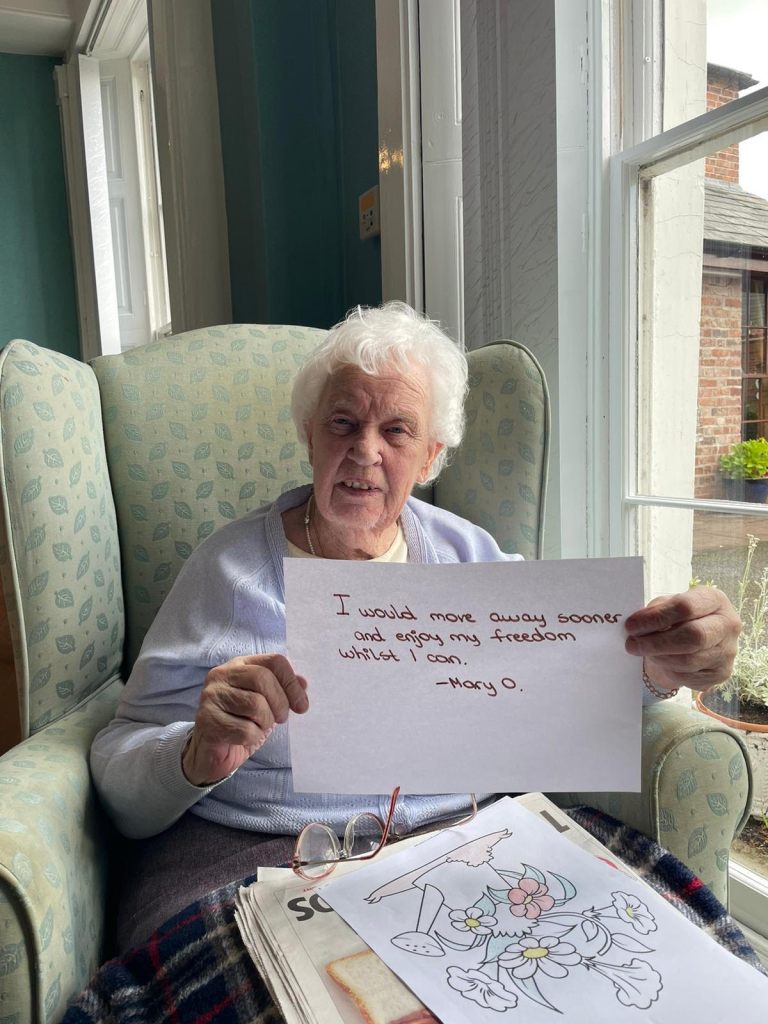 I would move away sooner
and enjoy my freedom
whilst I can.
-Mary O.